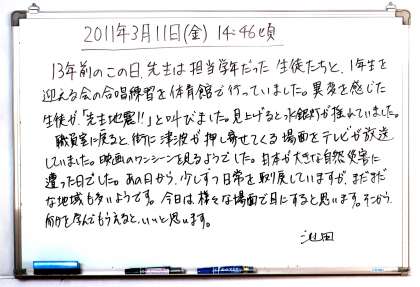 2011年3月11日(金) 14:46頃
13年前のこの日、先生は担当学年だった生徒たちと、1年生を
迎える会の合唱練習を体育館で行っていました。異変を感じた
生徒が、「先生地震!!」と叫びました。見上げると水銀灯が揺れていました。
職員室に戻ると、街に津波が押し寄せてくる場面をテレビが放送
していました。映画のワンシーンを見るようでした。日本が大きな自然災害に
遭った日でした。あの日から、少しずつ日常を取り戻していますが、まだまだ
な地域も多いようです。今日は様々な場面で目にすると思います。そこから、
何かを学んでもらえると、いいと思います。
池田